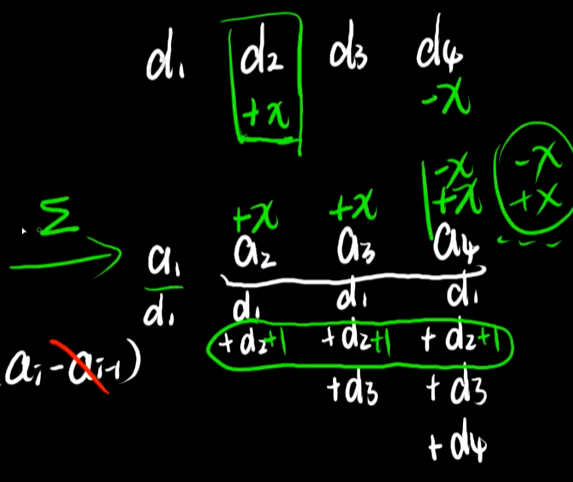 d₁ d₂ d₃ d₄
+x -x
-x -x
+x +x +x +x
Σ a₁ a₂ a₃ a₄
d₁ d₁ d₁ d₁
+d₂+1 +d₂+1 +d₂+1
aᵢ-aᵢ₋₁)
+d₃ +d₃
+d₄